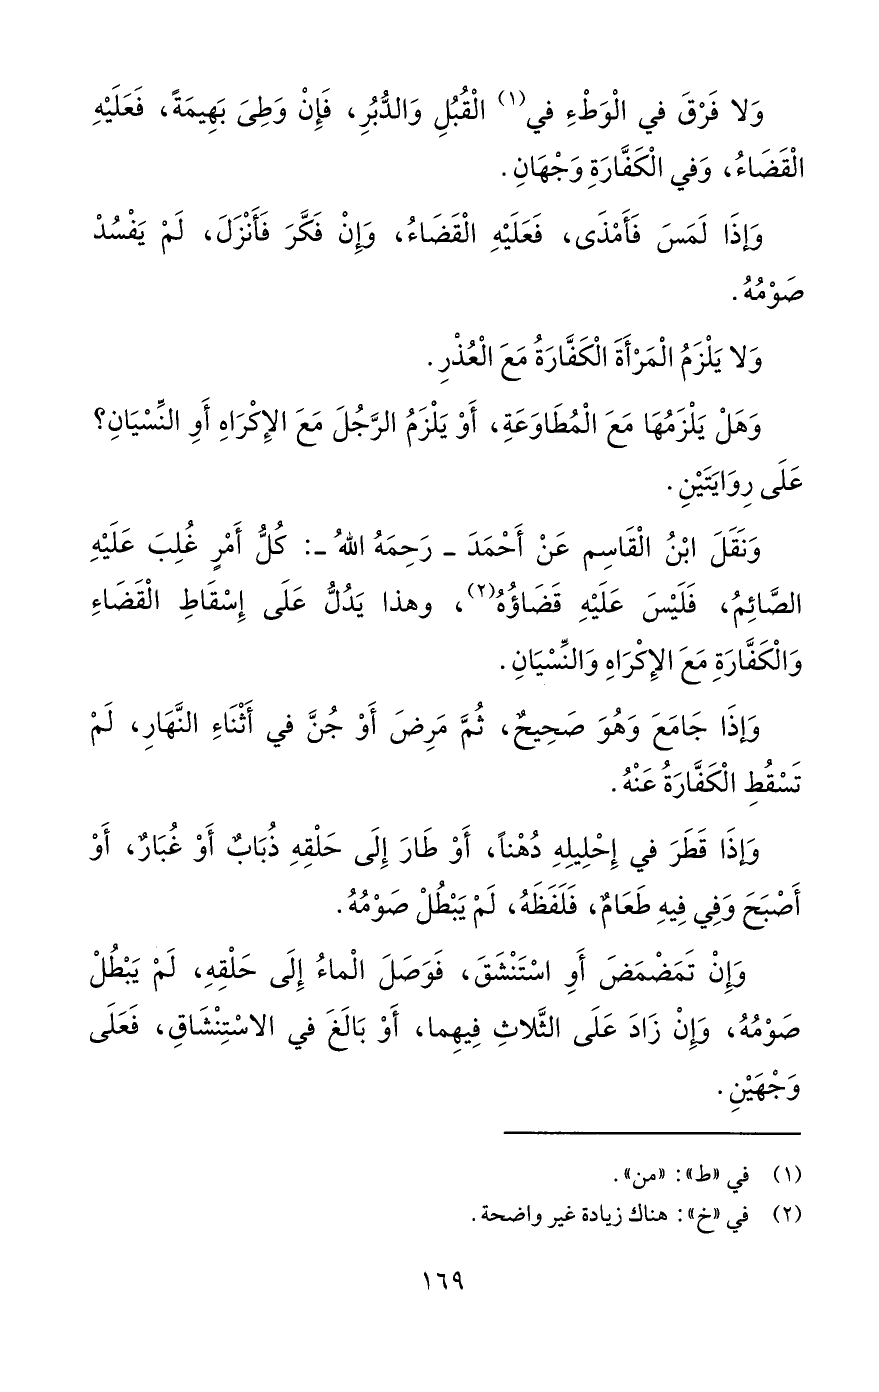 وَلا فَرْقَ في الْوَطْءِ في(١) الْقُبُلِ وَالدُّبُرِ، فَإِنْ وَطِىَ بَهِيمَةً، فَعَلَيْهِ
الْقَضَاءُ، وَفي الْكَفَّارَةِ وَجْهَانِ.
وَإِذَا لَمَسَ فَأَمْذَى، فَعَلَيْهِ الْقَضَاءُ، وَإِنْ فَكَّرَ فَأَنْزَلَ، لَمْ يَفْسُدْ
صَوْمُهُ.
وَلا يَلْزَمُ الْمَرْأَةَ الْكَفَّارَةُ مَعَ الْعُذْرِ.
وَهَلْ يَلْزَمُهَا مَعَ الْمُطَاوَعَةِ، أَوْ يَلْزَمُ الرَّجُلَ مَعَ الإِكْرَاهِ أَوِ النِّسْيَانِ؟
عَلَى رِوَايَتَيْنِ.
وَنَقَلَ ابْنُ الْقَاسِمِ عَنْ أَحْمَدَ ـ رَحِمَهُ اللهُ ـ: كُلُّ أَمْرٍ غُلِبَ عَلَيْهِ
الصَّائِمُ، فَلَيْسَ عَلَيْهِ قَضَاؤُهُ(٢)، وهذا يَدُلُّ عَلَى إِسْقَاطِ الْقَضَاءِ
وَالْكَفَّارَةِ مَعَ الإِكْرَاهِ وَالنِّسْيَانِ.
وَإِذَا جَامَعَ وَهُوَ صَحِيحٌ، ثُمَّ مَرِضَ أَوْ جُنَّ في أَثْنَاءِ النَّهَارِ، لَمْ
تَسْقُطِ الْكَفَّارَةُ عَنْهُ.
وَإِذَا قَطَرَ في إِحْلِيلِهِ دُهْناً، أَوْ طَارَ إِلَى حَلْقِهِ ذُبَابٌ أَوْ غُبَارٌ، أَوْ
أَصْبَحَ وَفِي فِيهِ طَعَامٌ، فَلَفَظَهُ، لَمْ يَبْطُلْ صَوْمُهُ.
وَإِنْ تَمَضْمَضَ أَوِ اسْتَنْشَقَ، فَوَصَلَ الْماءُ إِلَى حَلْقِهِ، لَمْ يَبْطُلْ
صَوْمُهُ، وَإِنْ زَادَ عَلَى الثَّلاثِ فِيهِما، أَوْ بَالَغَ في الاسْتِنْشَاقِ، فَعَلَى
وَجْهَيْنِ.
(١) في «ط»: «من».
(٢) في «خ»: هناك زيادة غير واضحة.
١٦٩